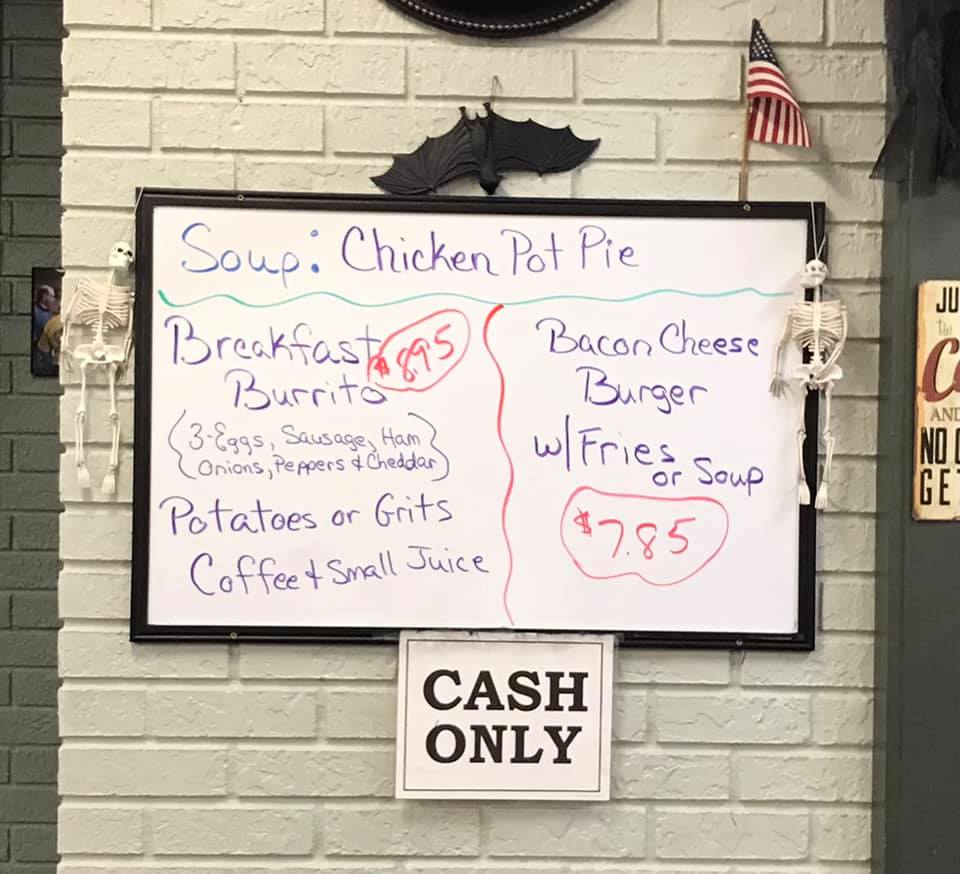 Soup: Chicken Pot Pie
Breakfast $8.95
Burrito
(3-Eggs, Sausage, Ham
Onions, Peppers & Cheddar)
Potatoes or Grits
Coffee & Small Juice
Bacon Cheese
Burger
w/ Fries
or Soup
$7.85
CASH
ONLY
JU
the
C
AND
NO
GET